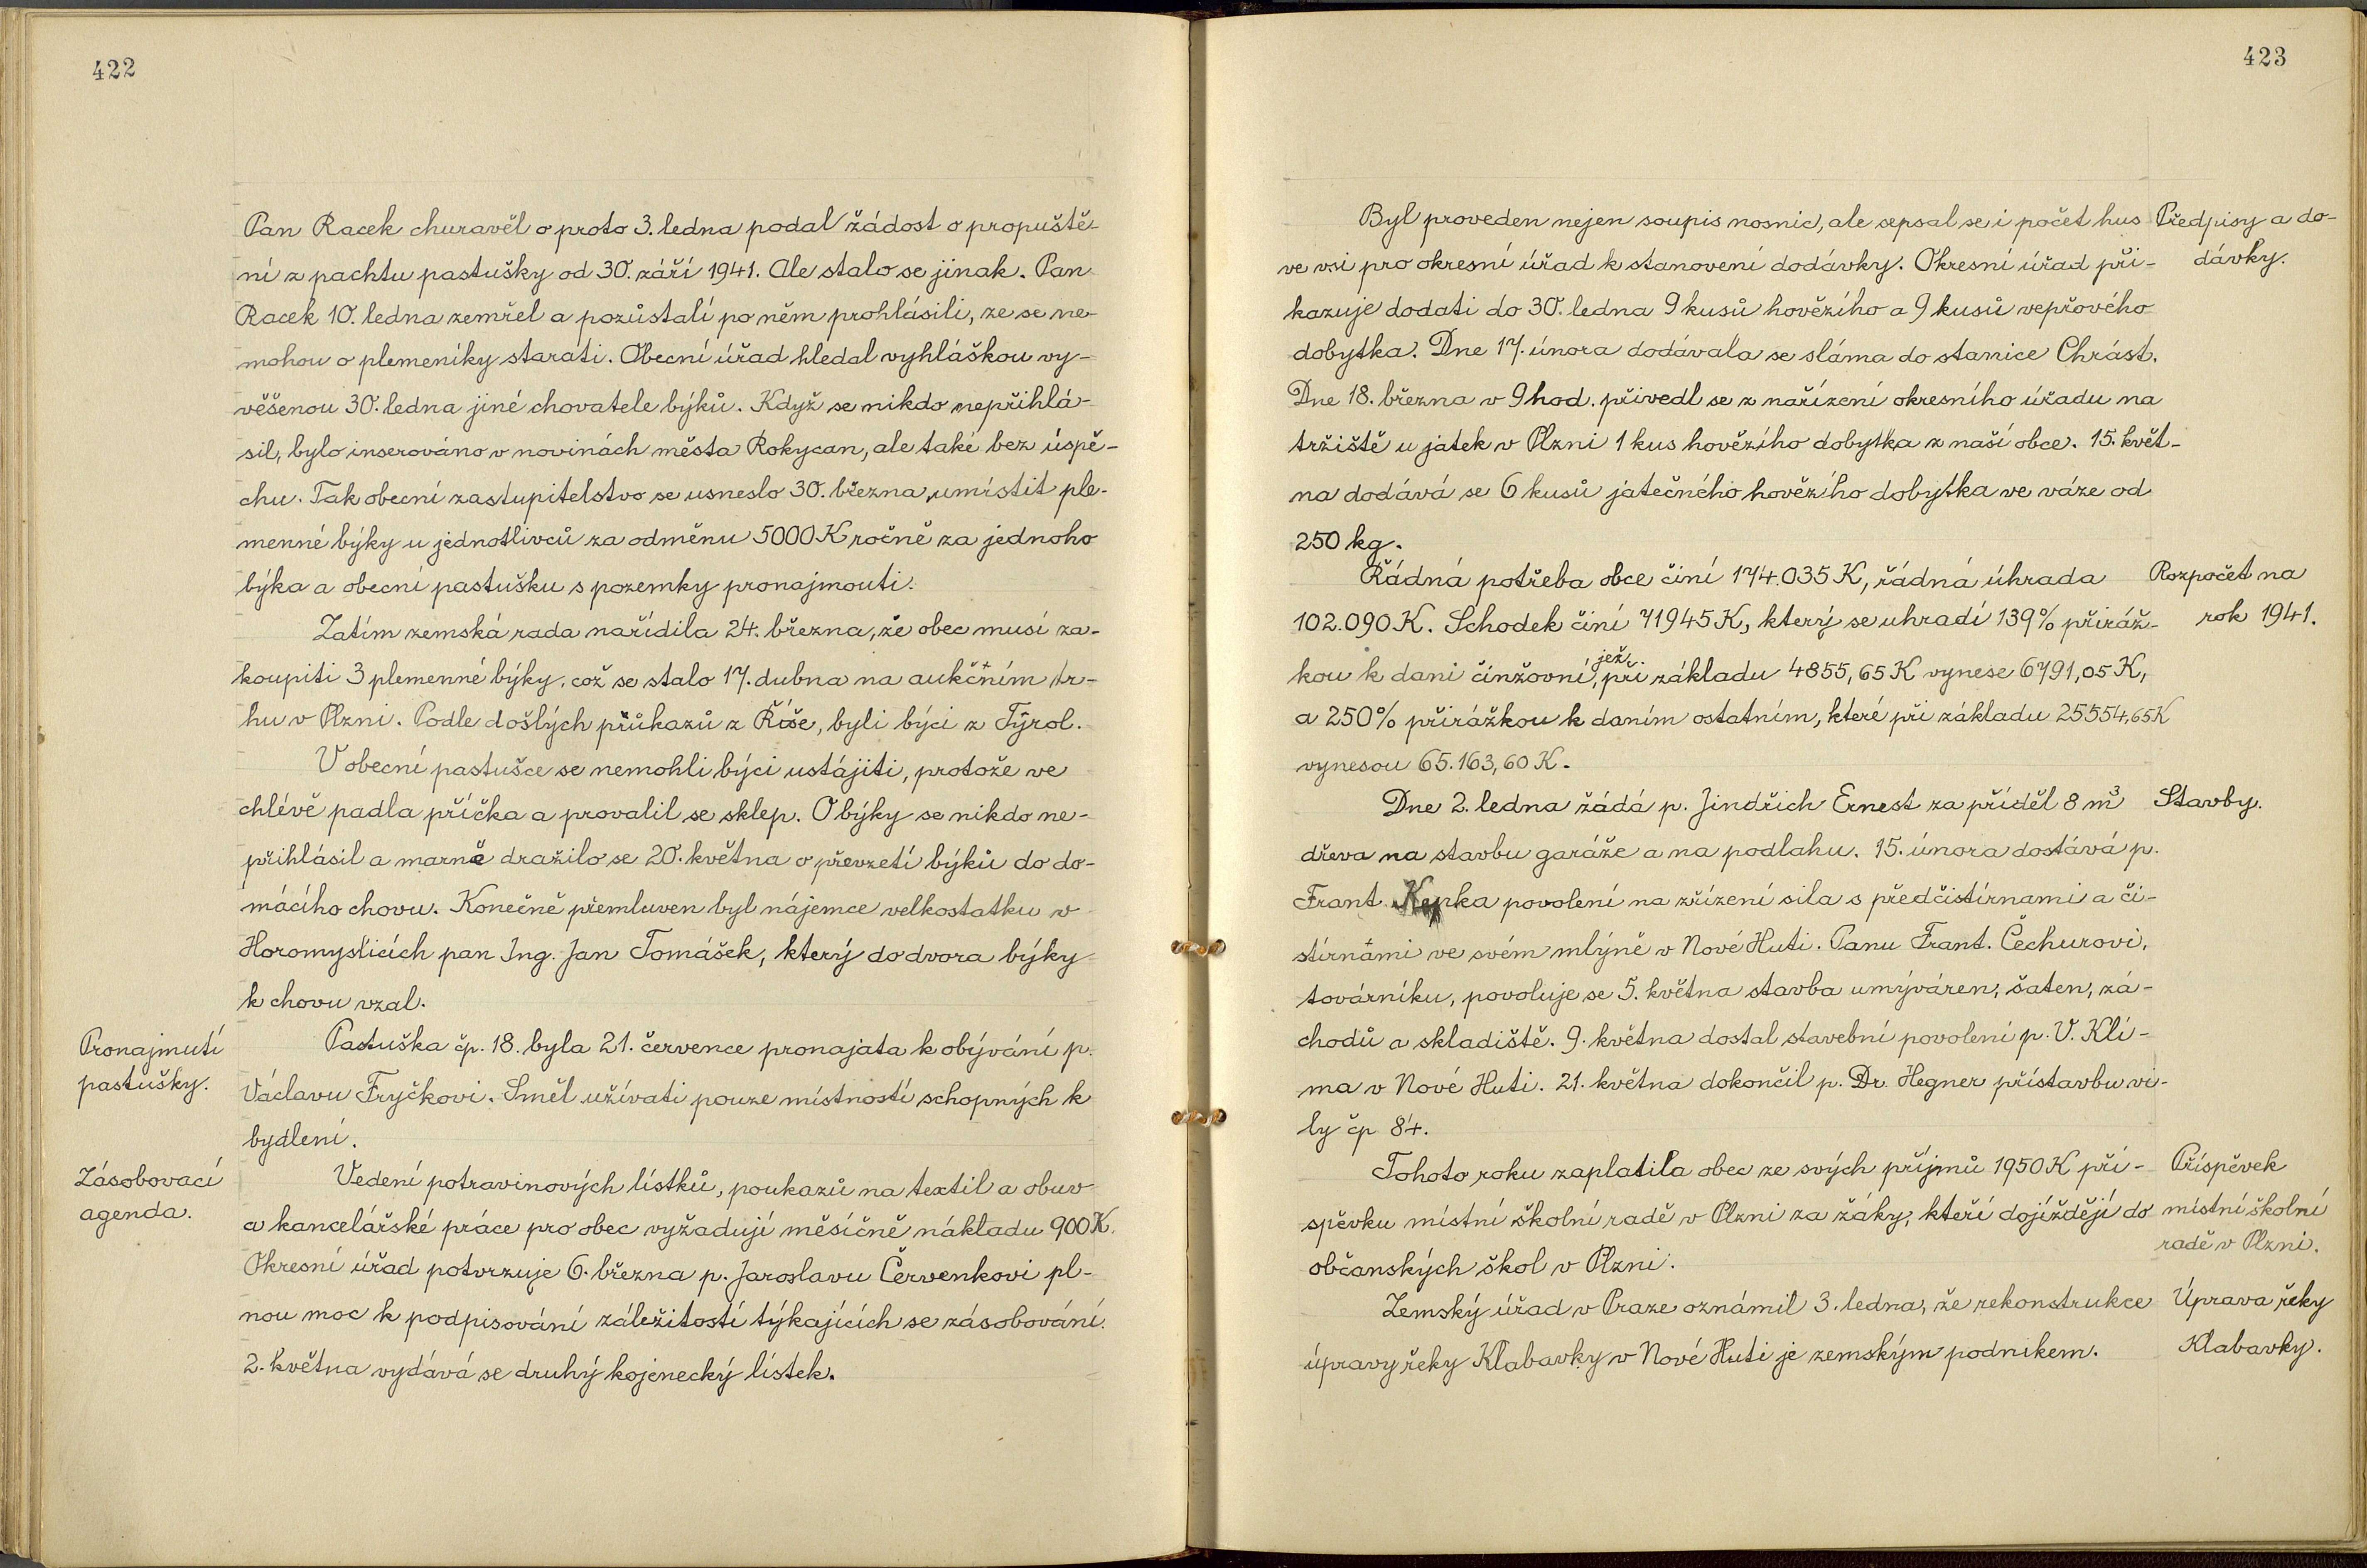 422
Pan Racek churavěl a proto 3. ledna podal žádost o propuště-
ní z pachtu pastušky od 30. září 1941. Ale stalo se jinak. Pan
Racek 10. ledna zemřel a pozůstalí po něm prohlásili, ze se ne-
mohou o plemeníky starati. Obecní úřad hledal vyhláškou vy-
věšenou 30. ledna jiné chovatele býků. Když se nikdo nepřihlá-
sil, bylo inserováno v novinách města Rokycan, ale také bez úspě-
chu. Tak obecní zastupitelstvo se usneslo 30. března umístit ple-
menné býky u jednotlivců za odměnu 5000 K ročně za jednoho
býka a obecní pastušku s pozemky pronajmouti.
Zatím zemská rada nařídila 24. března, že obec musí za-
koupiti 3 plemenné býky, což se stalo 17. dubna na aukčním tr-
hu v Plzni. Podle došlých průkazů z Říše, byli býci z Tyrol.
V obecní pastušce se nemohli býci ustájiti, protože ve
chlévě padla příčka a provalil se sklep. O býky se nikdo ne-
přihlásil a marně dražilo se 20. května o převzetí býků do do-
mácího chovu. Konečně přemluven byl nájemce velkostatku v
Horomyslicích pan Ing. Jan Tomášek, který do dvora býky
k chovu vzal.
Pronajmutí
pastušky.
Pastuška čp. 18. byla 21. července pronajata k obývání p.
Václavu Fryčkovi. Směl užívati pouze místností schopných k
bydlení.
Zásobovací
agenda.
Vedení potravinových lístků, poukazů na textil a obuv
a kancelářské práce pro obec vyžadují měsíčně nákladu 900 K.
Okresní úřad potvrzuje 6. března p. Jaroslavu Červenkovi pl-
nou moc k podpisování záležitostí týkajících se zásobování.
2. května vydává se druhý kojenecký lístek.
423
Byl proveden nejen soupis nosnic, ale sepsal se i počet hus
ve vsi pro okresní úřad k stanovení dodávky. Okresní úřad při-
kazuje dodati do 30. ledna 9 kusů hovězího a 9 kusů vepřového
dobytka. Dne 17. února dodávala se sláma do stanice Chrást.
Dne 18. března v 9 hod. přivedl se z nařízení okresního úřadu na
tržiště u jatek v Plzni 1 kus hovězího dobytka z naší obce. 15. květ-
na dodává se 6 kusů jatečného hovězího dobytka ve váze od
250 kg.
Předpisy a do-
dávky.
Řádná potřeba obce činí 174.035 K, řádná úhrada
102.090 K. Schodek činí 71945 K, který se uhradí 139% přiráž-
kou k dani činžovní, jež při základu 4855,65 K vynese 6791,05 K,
a 250% přirážkou k daním ostatním, které při základu 25554,65 K
vynesou 65.163,60 K.
Rozpočet na
rok 1941.
Dne 2. ledna žádá p. Jindřich Ernest za příděl 8 m³
dřeva na stavbu garáže a na podlahu. 15. února dostává p.
Frant. Kepka povolení na zřízení sila s předčistírnami a či-
stírnami ve svém mlýně v Nové Huti. Panu Frant. Čechurovi,
továrníku, povoluje se 5. května stavba umýváren, šaten, zá-
chodů a skladiště. 9. května dostal stavební povolení p. V. Klí-
ma v Nové Huti. 21. května dokončil p. Dr. Hegner přístavbu vi-
ly čp 84.
Stavby.
Tohoto roku zaplatila obec ze svých příjmů 1950 K pří-
spěvku místní školní radě v Plzni za žáky, kteří dojíždějí do
občanských škol v Plzni.
Příspěvek
místní školní
radě v Plzni.
Zemský úřad v Praze oznámil 3. ledna, že rekonstrukce
úpravy řeky Klabavky v Nové Huti je zemským podnikem.
Úprava řeky
Klabavky.